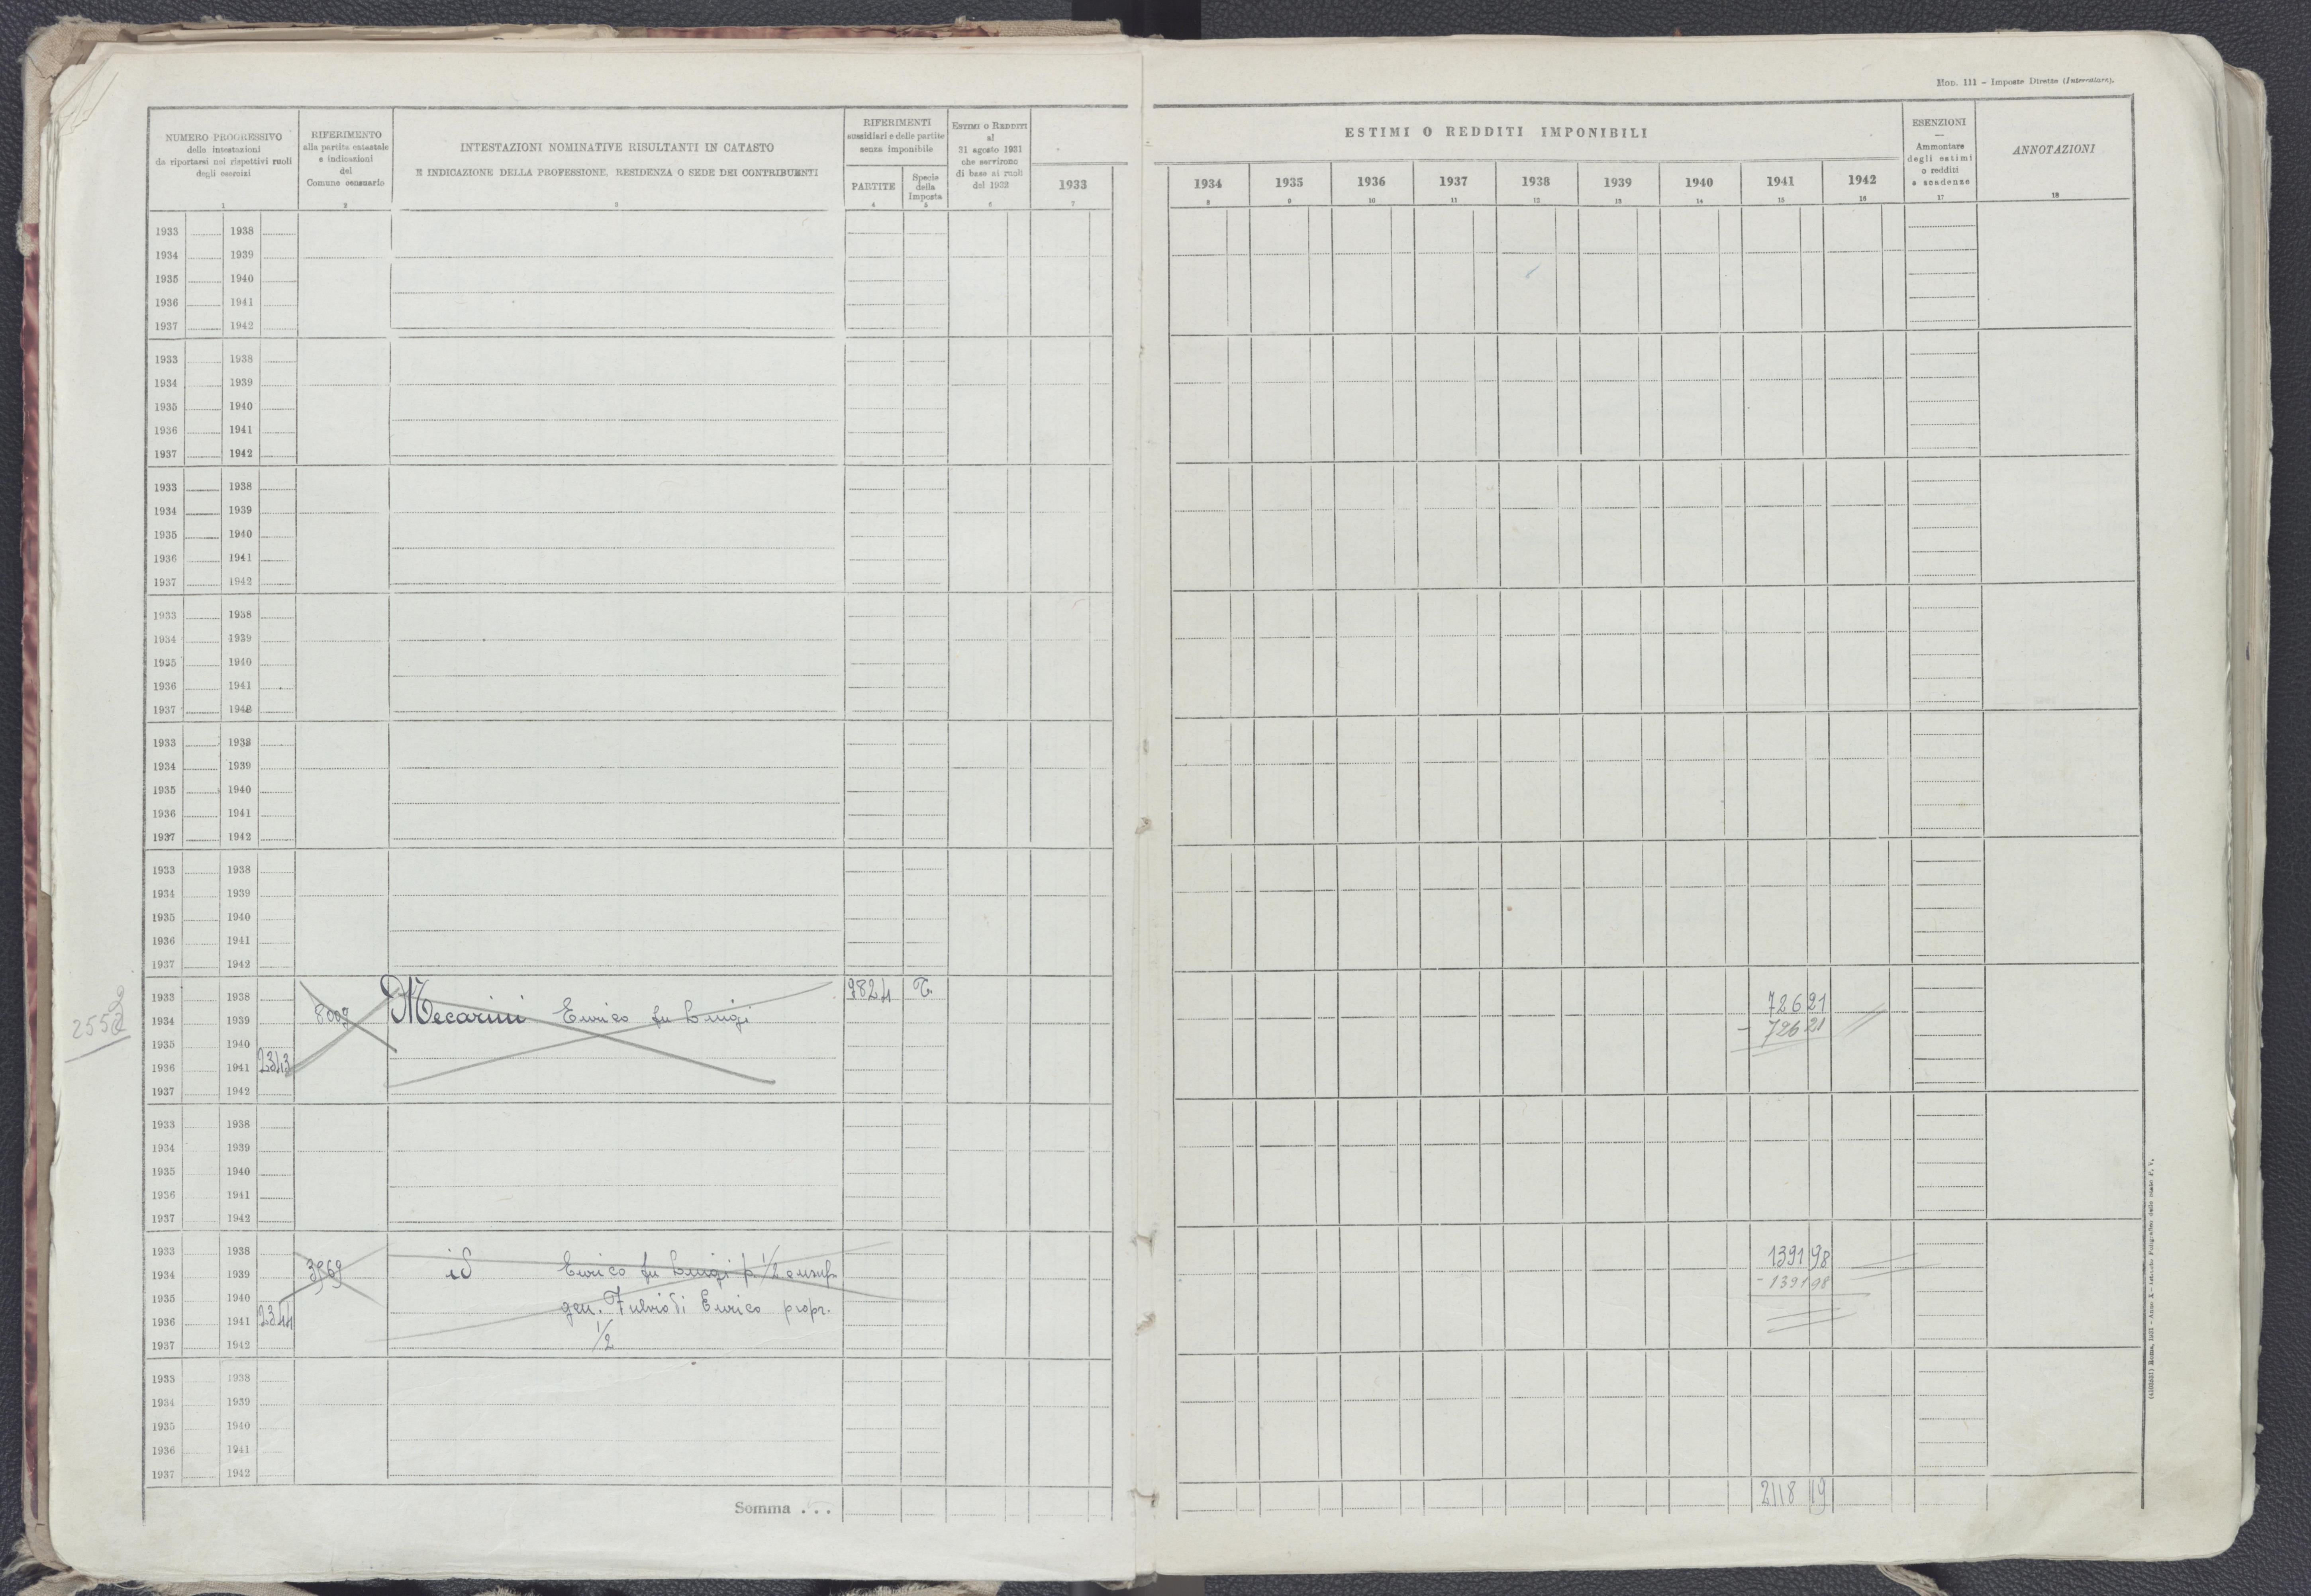 Mon. 111 - Imposte Dirette (Intercalare).
NUMERO PROGRESSIVO
delle intestazioni
da riportarsi nei rispettivi ruoli
degli esercizi
1
RIFERIMENTO
alla partita catastale
e indicazioni
del
Comune censuario
2
INTESTAZIONI NOMINATIVE RISULTANTI IN CATASTO
E INDICAZIONE DELLA PROFESSIONE, RESIDENZA O SEDE DEI CONTRIBUENTI
3
RIFERIMENTI
sussidiari e delle partite
senza imponibile
PARTITE
4
Specie
della
Imposta
5
ESTIMI O REDDITI
al
31 agosto 1931
che servirono
di base ai ruoli
del 1932
6
1933
7
ESTIMI O REDDITI IMPONIBILI
1934 1935 1936 1937 1938 1939 1940 1941 1942
8 9 10 11 12 13 14 15 16
ESENZIONI
—
Ammontare
degli estimi
o redditi
e scadenze
17
ANNOTAZIONI
18
1933 1938
1934 1939
1935 1940
1936 1941
1937 1942
1933 1938
1934 1939
1935 1940
1936 1941
1937 1942
1933 1938
1934 1939
1935 1940
1936 1941
1937 1942
1933 1938
1934 1939
1935 1940
1936 1941
1937 1942
1933 1938
1934 1939
1935 1940
1936 1941
1937 1942
1933 1938
1934 1939
1935 1940
1936 1941
1937 1942
1933 1938 9824 T. 726 21
1934 1939 Mecarini Enrico fu Luigi - 726 21
1935 1940
1936 1941 2343
1937 1942
1933 1938
1934 1939
1935 1940
1936 1941
1937 1942
1933 1938 1391 98
1934 1939 3969 id Enrico fu Luigi p. 1/2 e usuf. - 1391 98
1935 1940 gen. Fulvio di Enrico propr.
1936 1941 2344
1937 1942 1/2
1933 1938
1934 1939
1935 1940
1936 1941
1937 1942
Somma . . . 2118 19